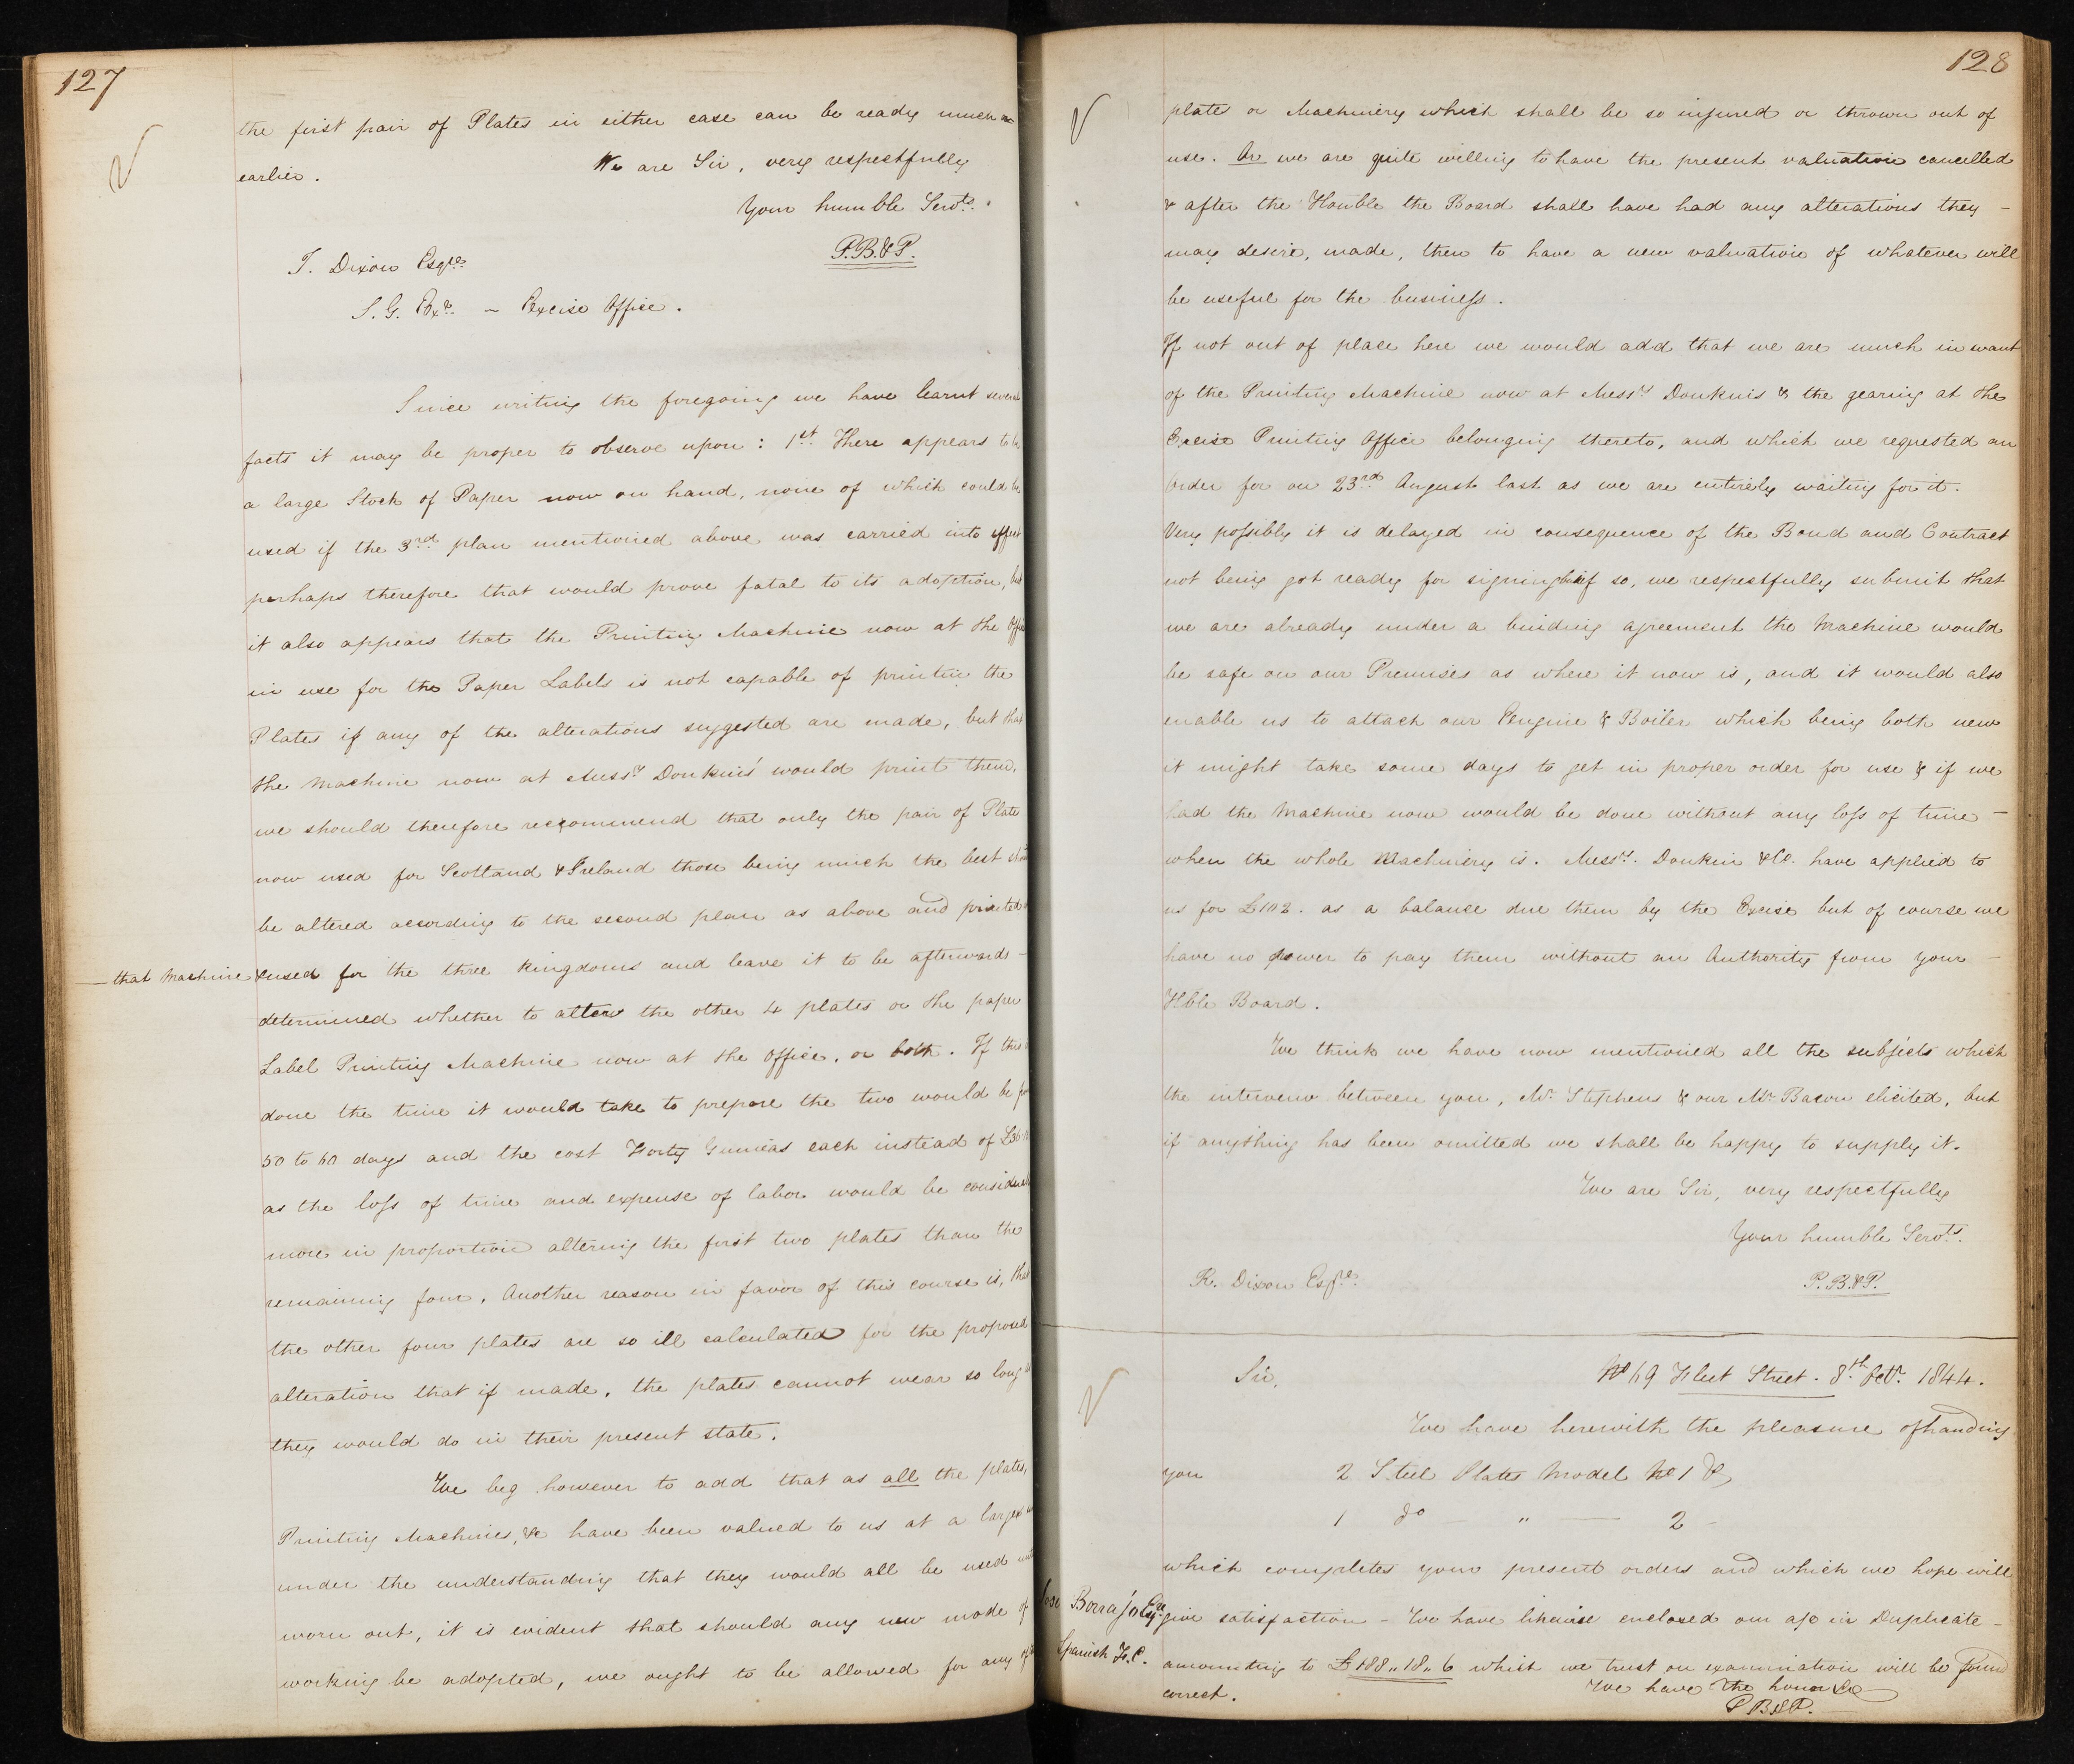 127
the first pair of Plates in either case can be ready much
earlier.
We are Sir, very respectfully
Your humble Servts.
P.B.&P.
T. Dixon Esqre
S. G. Exe. – Excise Office.
Since writing the foregoing we have learnt several
facts it may be proper to observe upon: 1st. There appears to be
a large Stock of Paper now on hand, none of which could be
used if the 3rd plan mentioned above was carried into effect
perhaps therefore that would prove fatal to its adoption, but
it also appears that the Printing Machine now at the Office
in use for the Paper Labels is not capable of printin the
Plates if any of the alterations suggested are made, but that
the Machine now at Messrs Donkins' would print them,
we should therefore reccommend that only the pair of Plate
now used for Scotland & Ireland those being much the best
be altered according to the second plan as above and printed
– that Machine & used for the three kingdoms and leave it to be afterwards –
determined whether to alter the other 4 plates or the paper
Label Printing Machine now at the office, or both. If this
done the time it would take to prepare the two would be
50 to 60 days and the cost Forty Guineas each instead of
as the loss of time and expense of labor would be
more in proportion altering the first two plates than the
remaining four. Another reason in favor of this course is, that
the other four plates are so ill calculated for the proposed
alteration that if made, the plates cannot wear so long
they would do in their present state.
We beg however to add that as all the plates,
Printing Machines, &c have been valued to us at a large
under the understanding that they would all be used
worn out, it is evident that should any new mode of
working be adopted, we ought to be allowed for any
128
plate or Machinery which shall be so injured or thrown out of
use. Or we are quite willing to have the present valuation cancelled
& after the Honble the Board shall have had any alterations they –
may desire, made, then to have a new valuation of whatever will
be useful for the business.
If not out of place here we would add that we are much in want
of the Printing Machine now at Messrs Donkins & the gearing at the
Excise Printing Office belonging thereto, and which we requested an
order for on 23rd August last as we are entirely waiting for it.
Very possibly it is delayed in consequence of the Bond and Contract
not being got ready for signing but if so, we respectfully submit that
we are already under a binding agreement the Machine would
be safe on our Premises as where it now is, and it would also
enable us to attach our Engine & Boiler which being both new
it might take some days to get in proper order for use & if we
had the Machine now would be done without any loss of time –
when the whole Machinery is. Messrs. Donkin & Co. have applied to
us for £102. as a balance due them by the Excise but of course we
have no power to pay them without an Authority from your –
Hble Board.
We think we have now mentioned all the subjects which
the interview between you, Mr. Stephens & our Mr. Bacon elicited, but
if anything has been omitted we shall be happy to supply it.
We are Sir, very respectfully
Your humble Servts.
R. Dixon Esqre.
P.B.&P.
Sir,
No 69 Fleet Street. 8th Octr. 1844.
We have herewith the pleasure of handing
you 2 Steel Plates Model No 1 &
1 do – " – 2 –
which completes your present orders and which we hope will
Jose Borrajo Esqre give satisfaction – We have likewise enclosed our a/c in Duplicate –
Spanish F.C. amounting to £188,,18,,6 which we trust on examination will be found
correct.
We have the honor &c
P B & P.